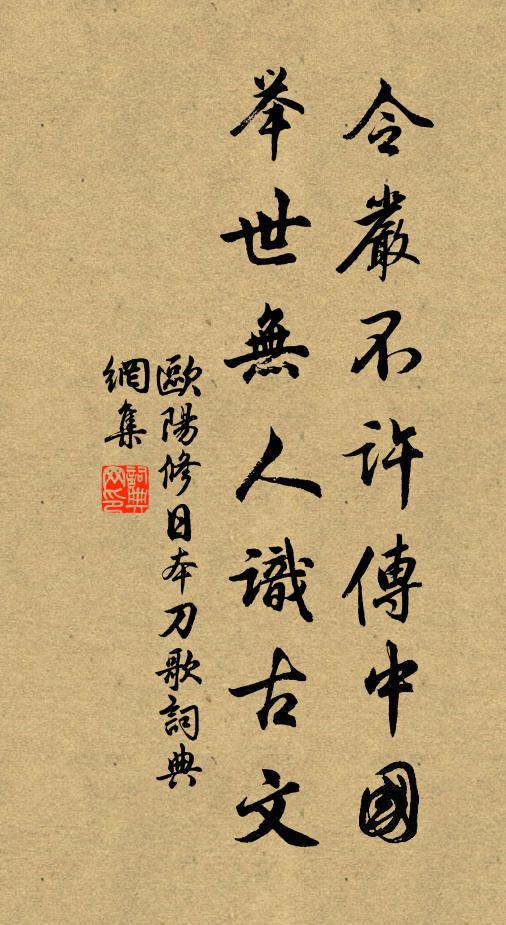 令嚴不許傳中國
举世無人識古文
歐陽修日本刀歌詞典
網集
詞典網印